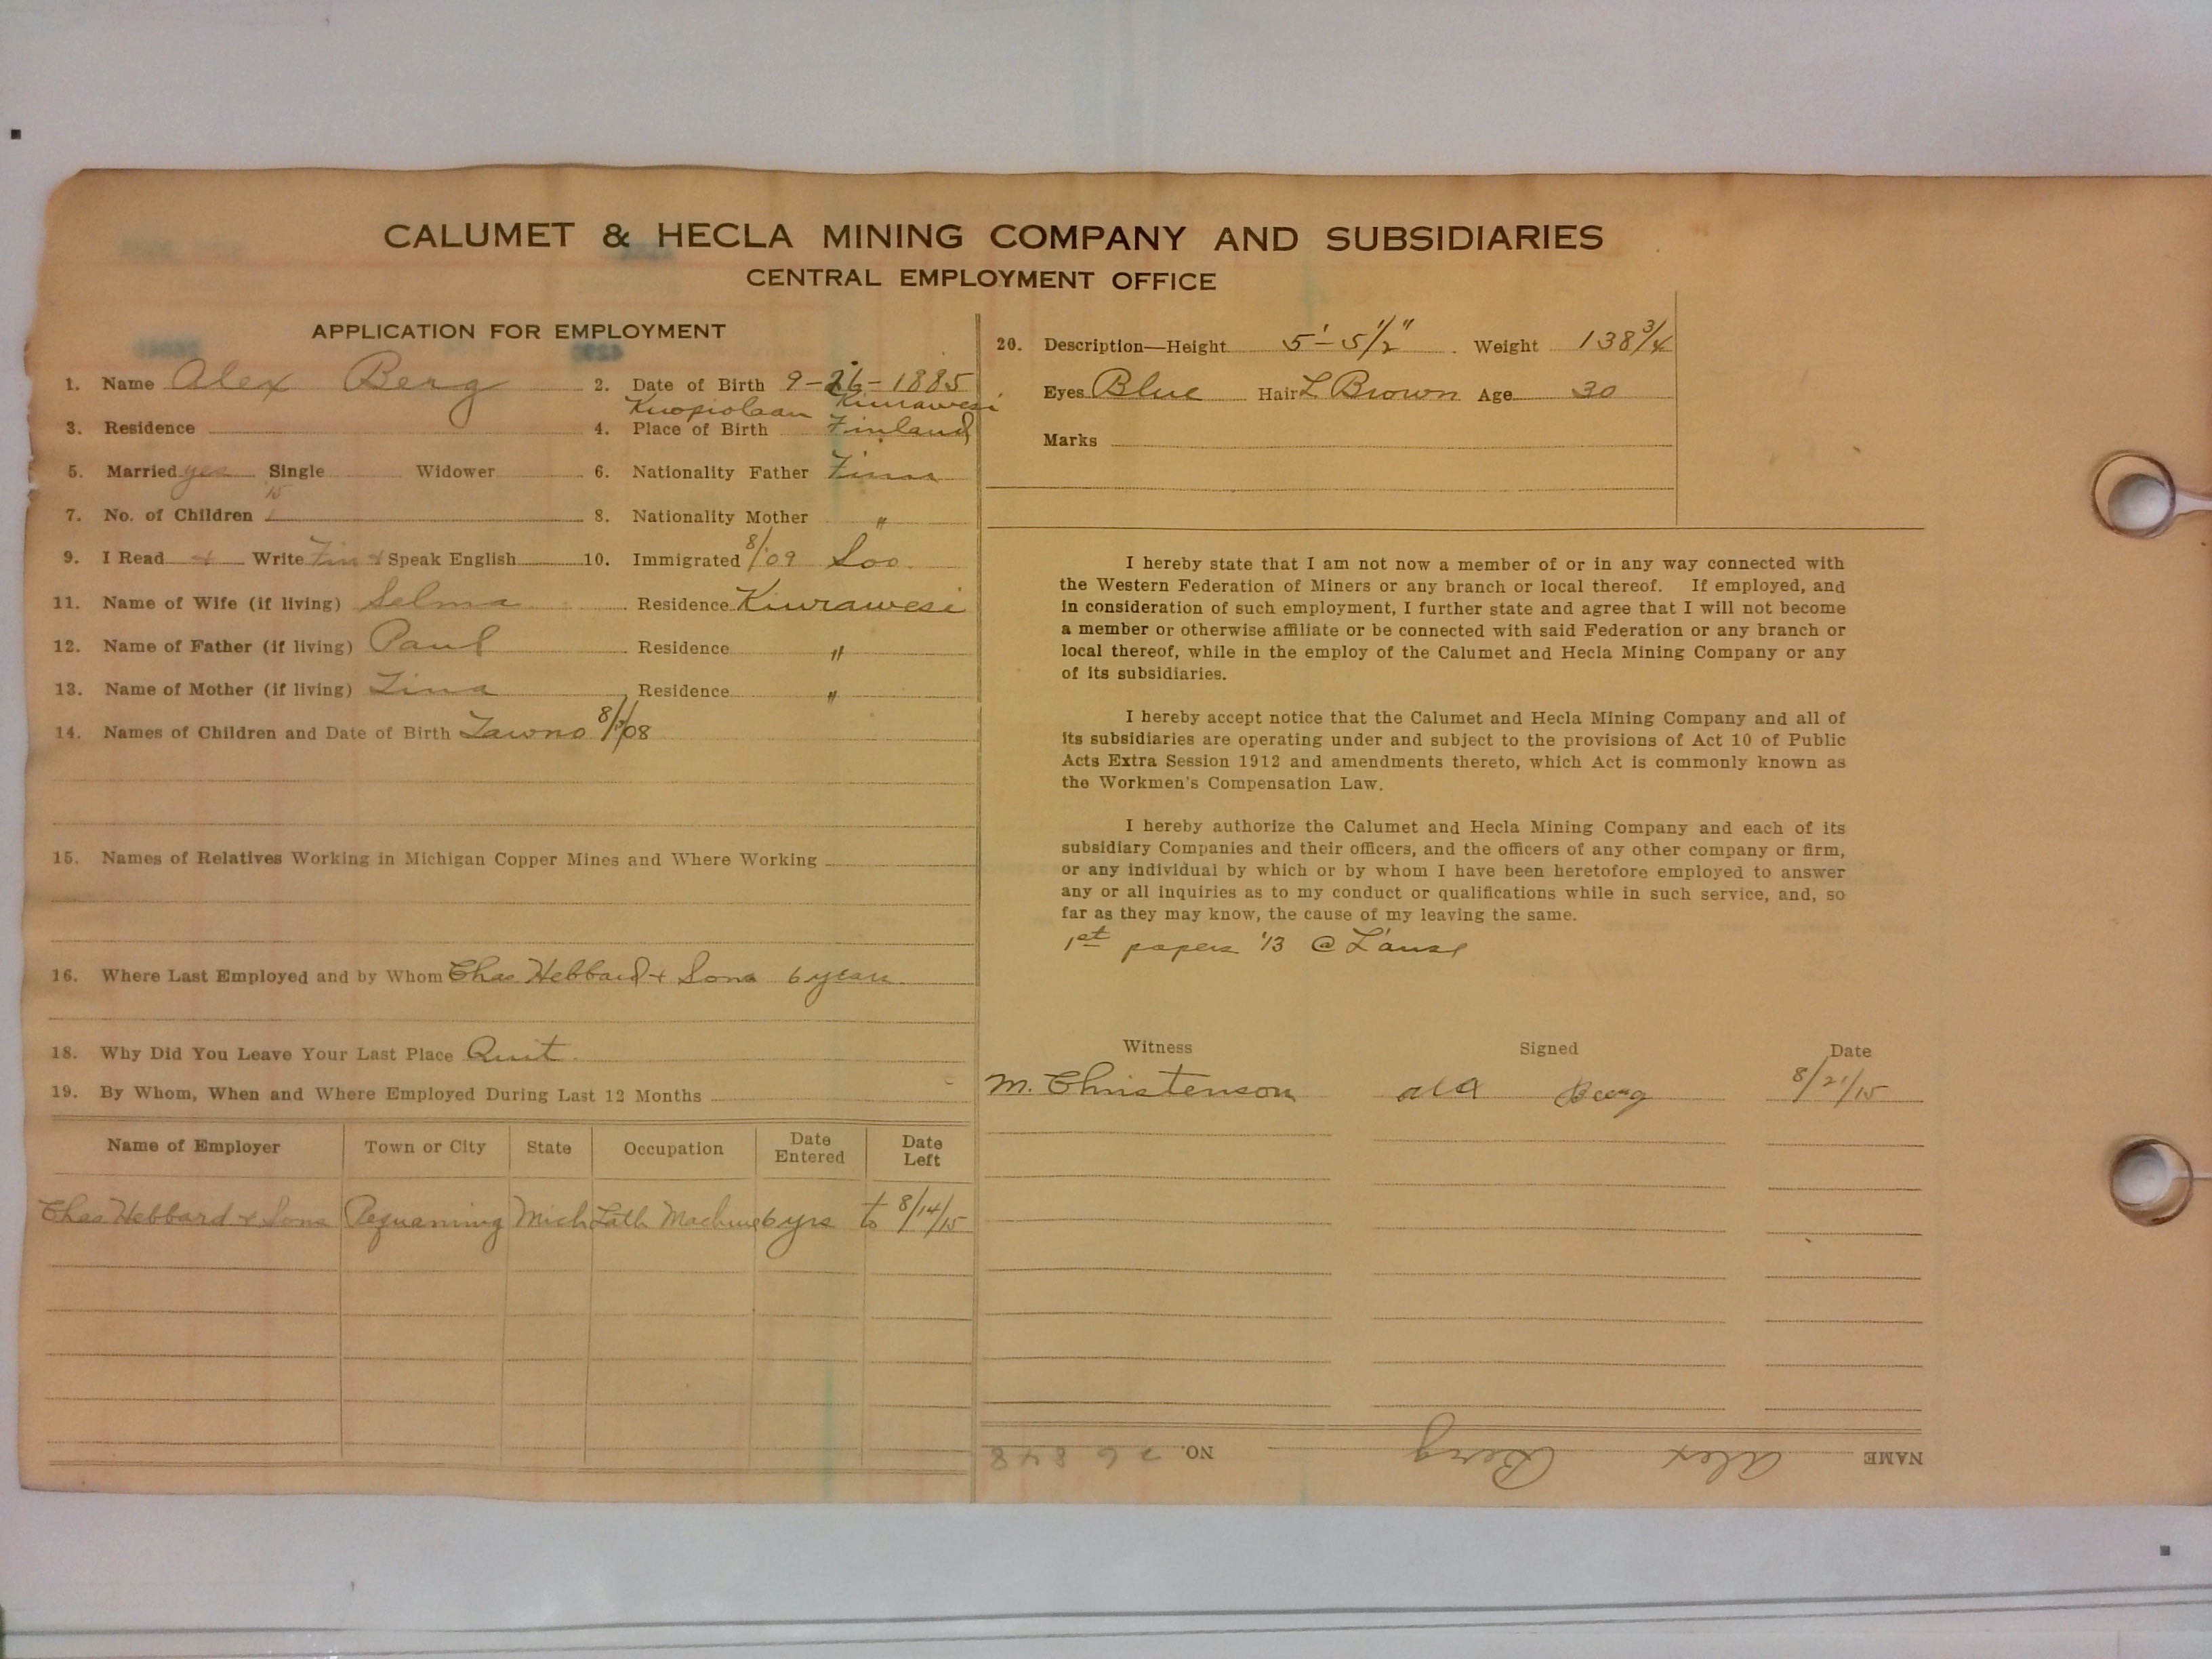 CALUMET & HECLA MINING COMPANY AND SUBSIDIARIES
CENTRAL EMPLOYMENT OFFICE
APPLICATION FOR EMPLOYMENT
1. Name Alex Berg 2. Date of Birth 9-26-1885
Kuopiolaan Kiurawesi
3. Residence 4. Place of Birth Finland
5. Married yes Single Widower 6. Nationality Father Finn
15
7. No. of Children 1 8. Nationality Mother "
9. I Read + Write Finn + Speak English 10. Immigrated 8/09 Soo
11. Name of Wife (if living) Selma Residence Kiurawesi
12. Name of Father (if living) Paul Residence "
13. Name of Mother (if living) Lina Residence "
14. Names of Children and Date of Birth Tawno 8/ /08
15. Names of Relatives Working in Michigan Copper Mines and Where Working
16. Where Last Employed and by Whom Chas Hebbard + Sons 6 years
18. Why Did You Leave Your Last Place Quit
19. By Whom, When and Where Employed During Last 12 Months
Name of Employer Town or City State Occupation Date Entered Date Left
Chas Hebbard + Sons Pequaming Mich Lath Machine 6 yrs to 8/14/15
20. Description—Height 5'-5½" Weight 138¾
Eyes Blue Hair L Brown Age 30
Marks
I hereby state that I am not now a member of or in any way connected with
the Western Federation of Miners or any branch or local thereof. If employed, and
in consideration of such employment, I further state and agree that I will not become
a member or otherwise affiliate or be connected with said Federation or any branch or
local thereof, while in the employ of the Calumet and Hecla Mining Company or any
of its subsidiaries.
I hereby accept notice that the Calumet and Hecla Mining Company and all of
its subsidiaries are operating under and subject to the provisions of Act 10 of Public
Acts Extra Session 1912 and amendments thereto, which Act is commonly known as
the Workmen's Compensation Law.
I hereby authorize the Calumet and Hecla Mining Company and each of its
subsidiary Companies and their officers, and the officers of any other company or firm,
or any individual by which or by whom I have been heretofore employed to answer
any or all inquiries as to my conduct or qualifications while in such service, and, so
far as they may know, the cause of my leaving the same.
1st papers '13 @ L'anse
Witness Signed Date
M. Christenson Berg 8/21/15
NAME Alex Berg NO. 26848